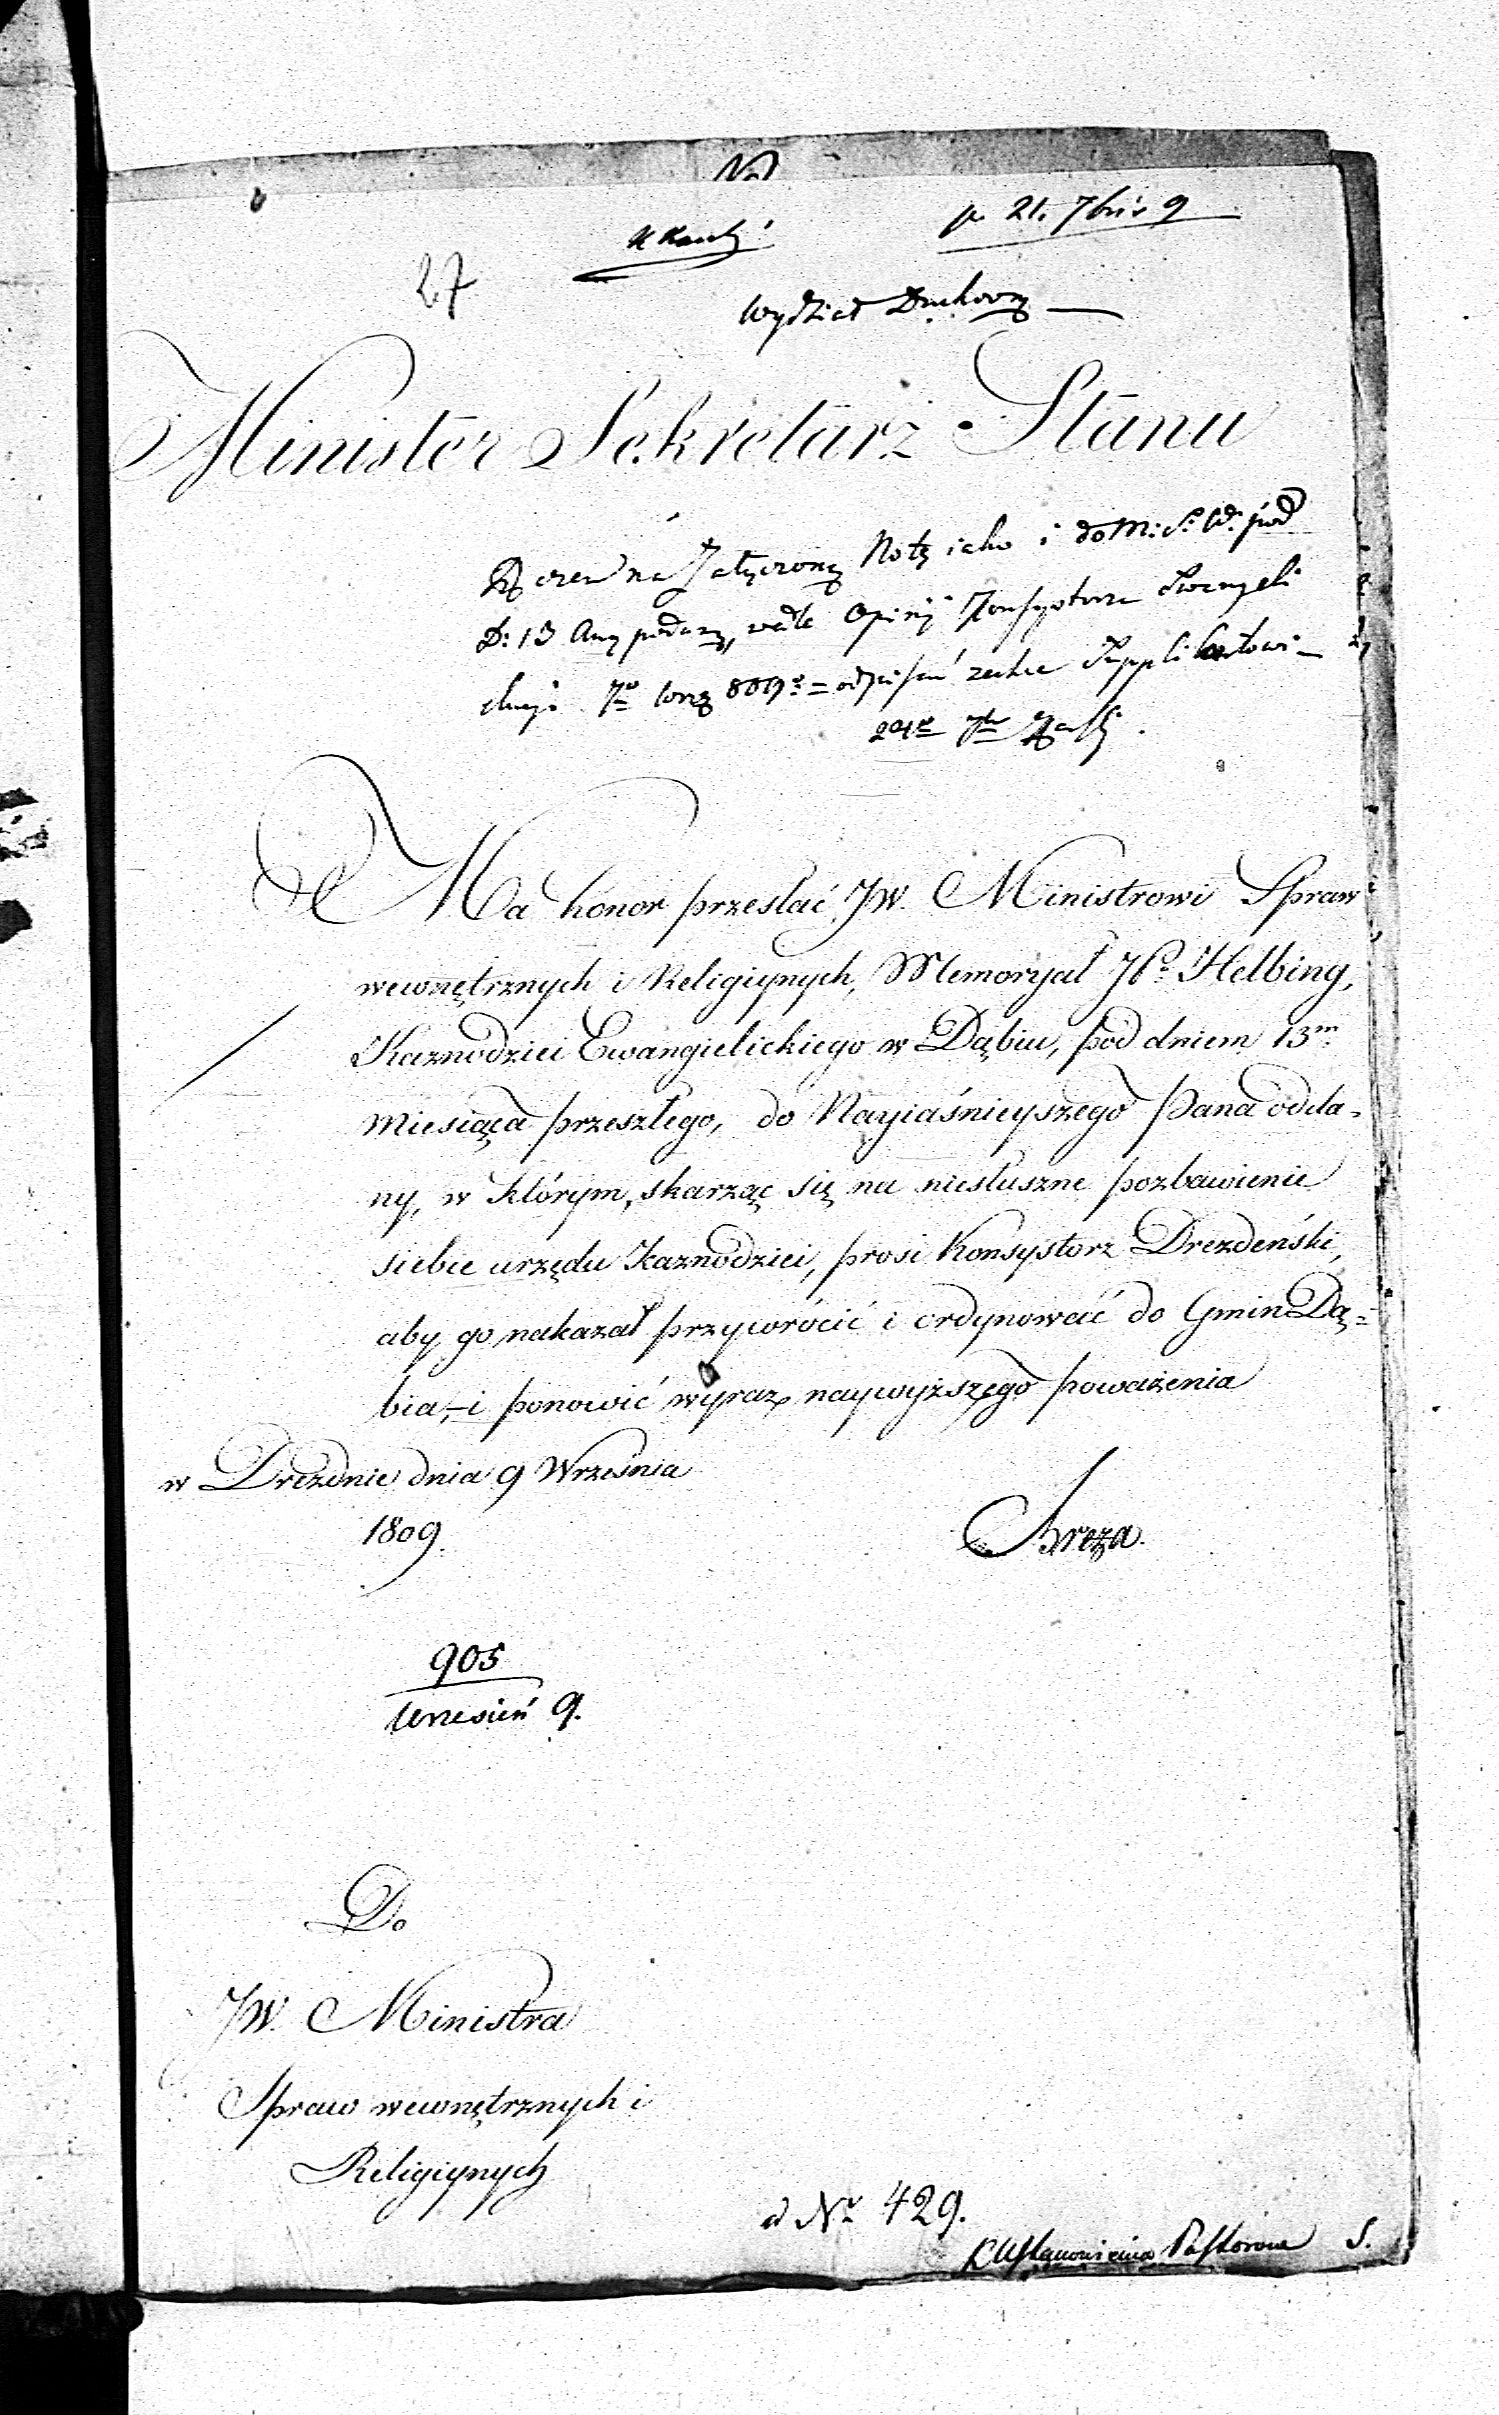 No
p. 21. 7bris 9
27
Wydział Duchowny
Minister Sekretarz Stanu
na załączoną Notę iako i do M: S: W: pod
D: 13 Aug podaną, wedle Opinij Konsystorza Ewangeli
809 = odpisać zechce Supplikantowi
24
Ma honor przesłać JW. Ministrowi Spraw
wewnętrznych i Religiynych, Memoryał JP. Helbing,
Kaznodziei Ewangielickiego w Dąbiu, pod dniem 13m
miesiąca przeszłego, do Nayiaśnieyszego Pana odda-
ny, w którym, skarżąc się na niesłuszne pozbawienie
siebie urzędu Kaznodziei, prosi Konsystorz Drezdeński,
aby go nakazał przywrócić i ordynować do Gmin Dą=
bia,-i ponowić wyraz naywyższego poważenia
w Dreznie dnia 9 Września
1809.
Breza.
905
Wrzesień 9.
Do
JW. Ministra
Spraw wewnętrznych i
Religiynych
ad No 429.
Ustanowienia Pastorow S.